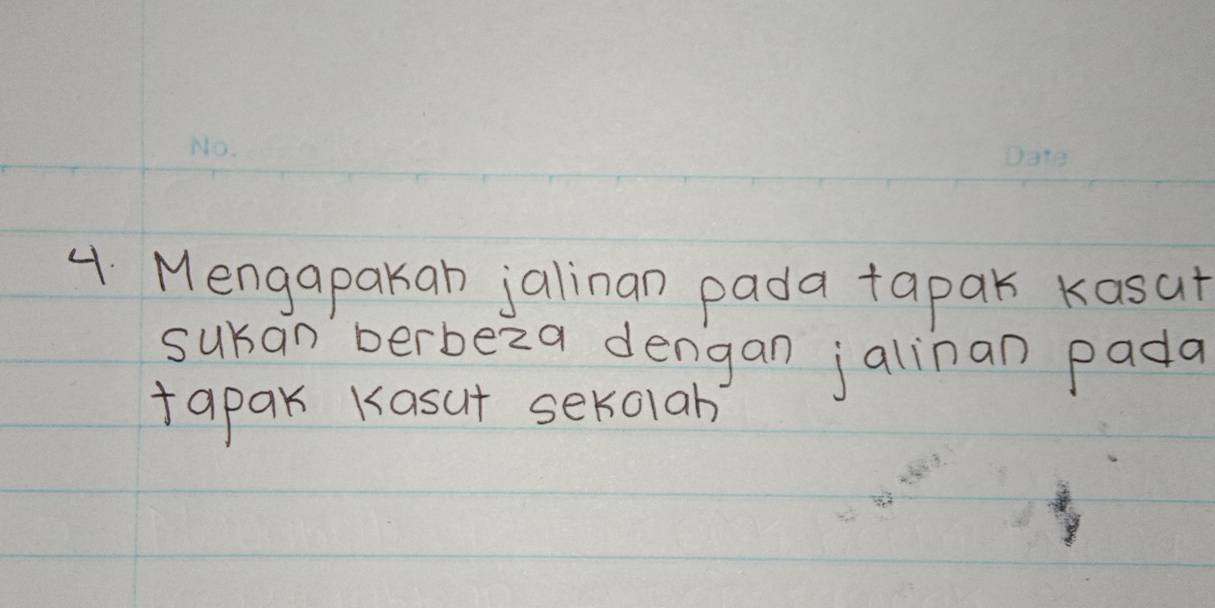 No. Date
4. Mengapakah jalinan pada tapak kasut
sukan berbeza dengan jalinan pada
tapak kasut sekolah